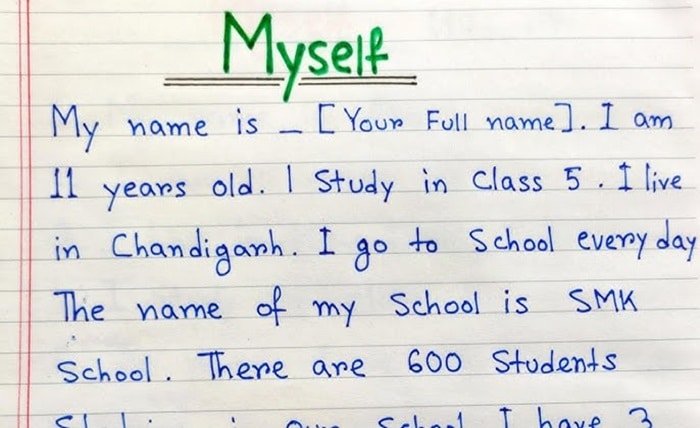 Myself
My name is _ [Your Full name]. I am
11 years old. I Study in Class 5. I live
in Chandigarh. I go to School every day
The name of my School is SMK
School. There are 600 Students
School I have 3